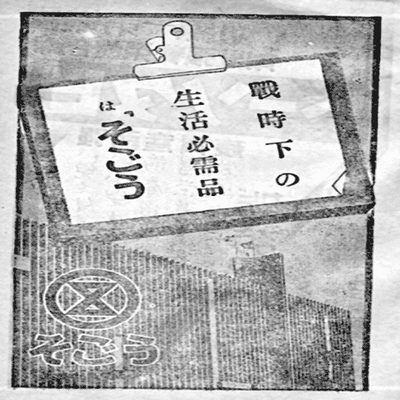 戰時下の
生活必需品
は、そごう
そごう